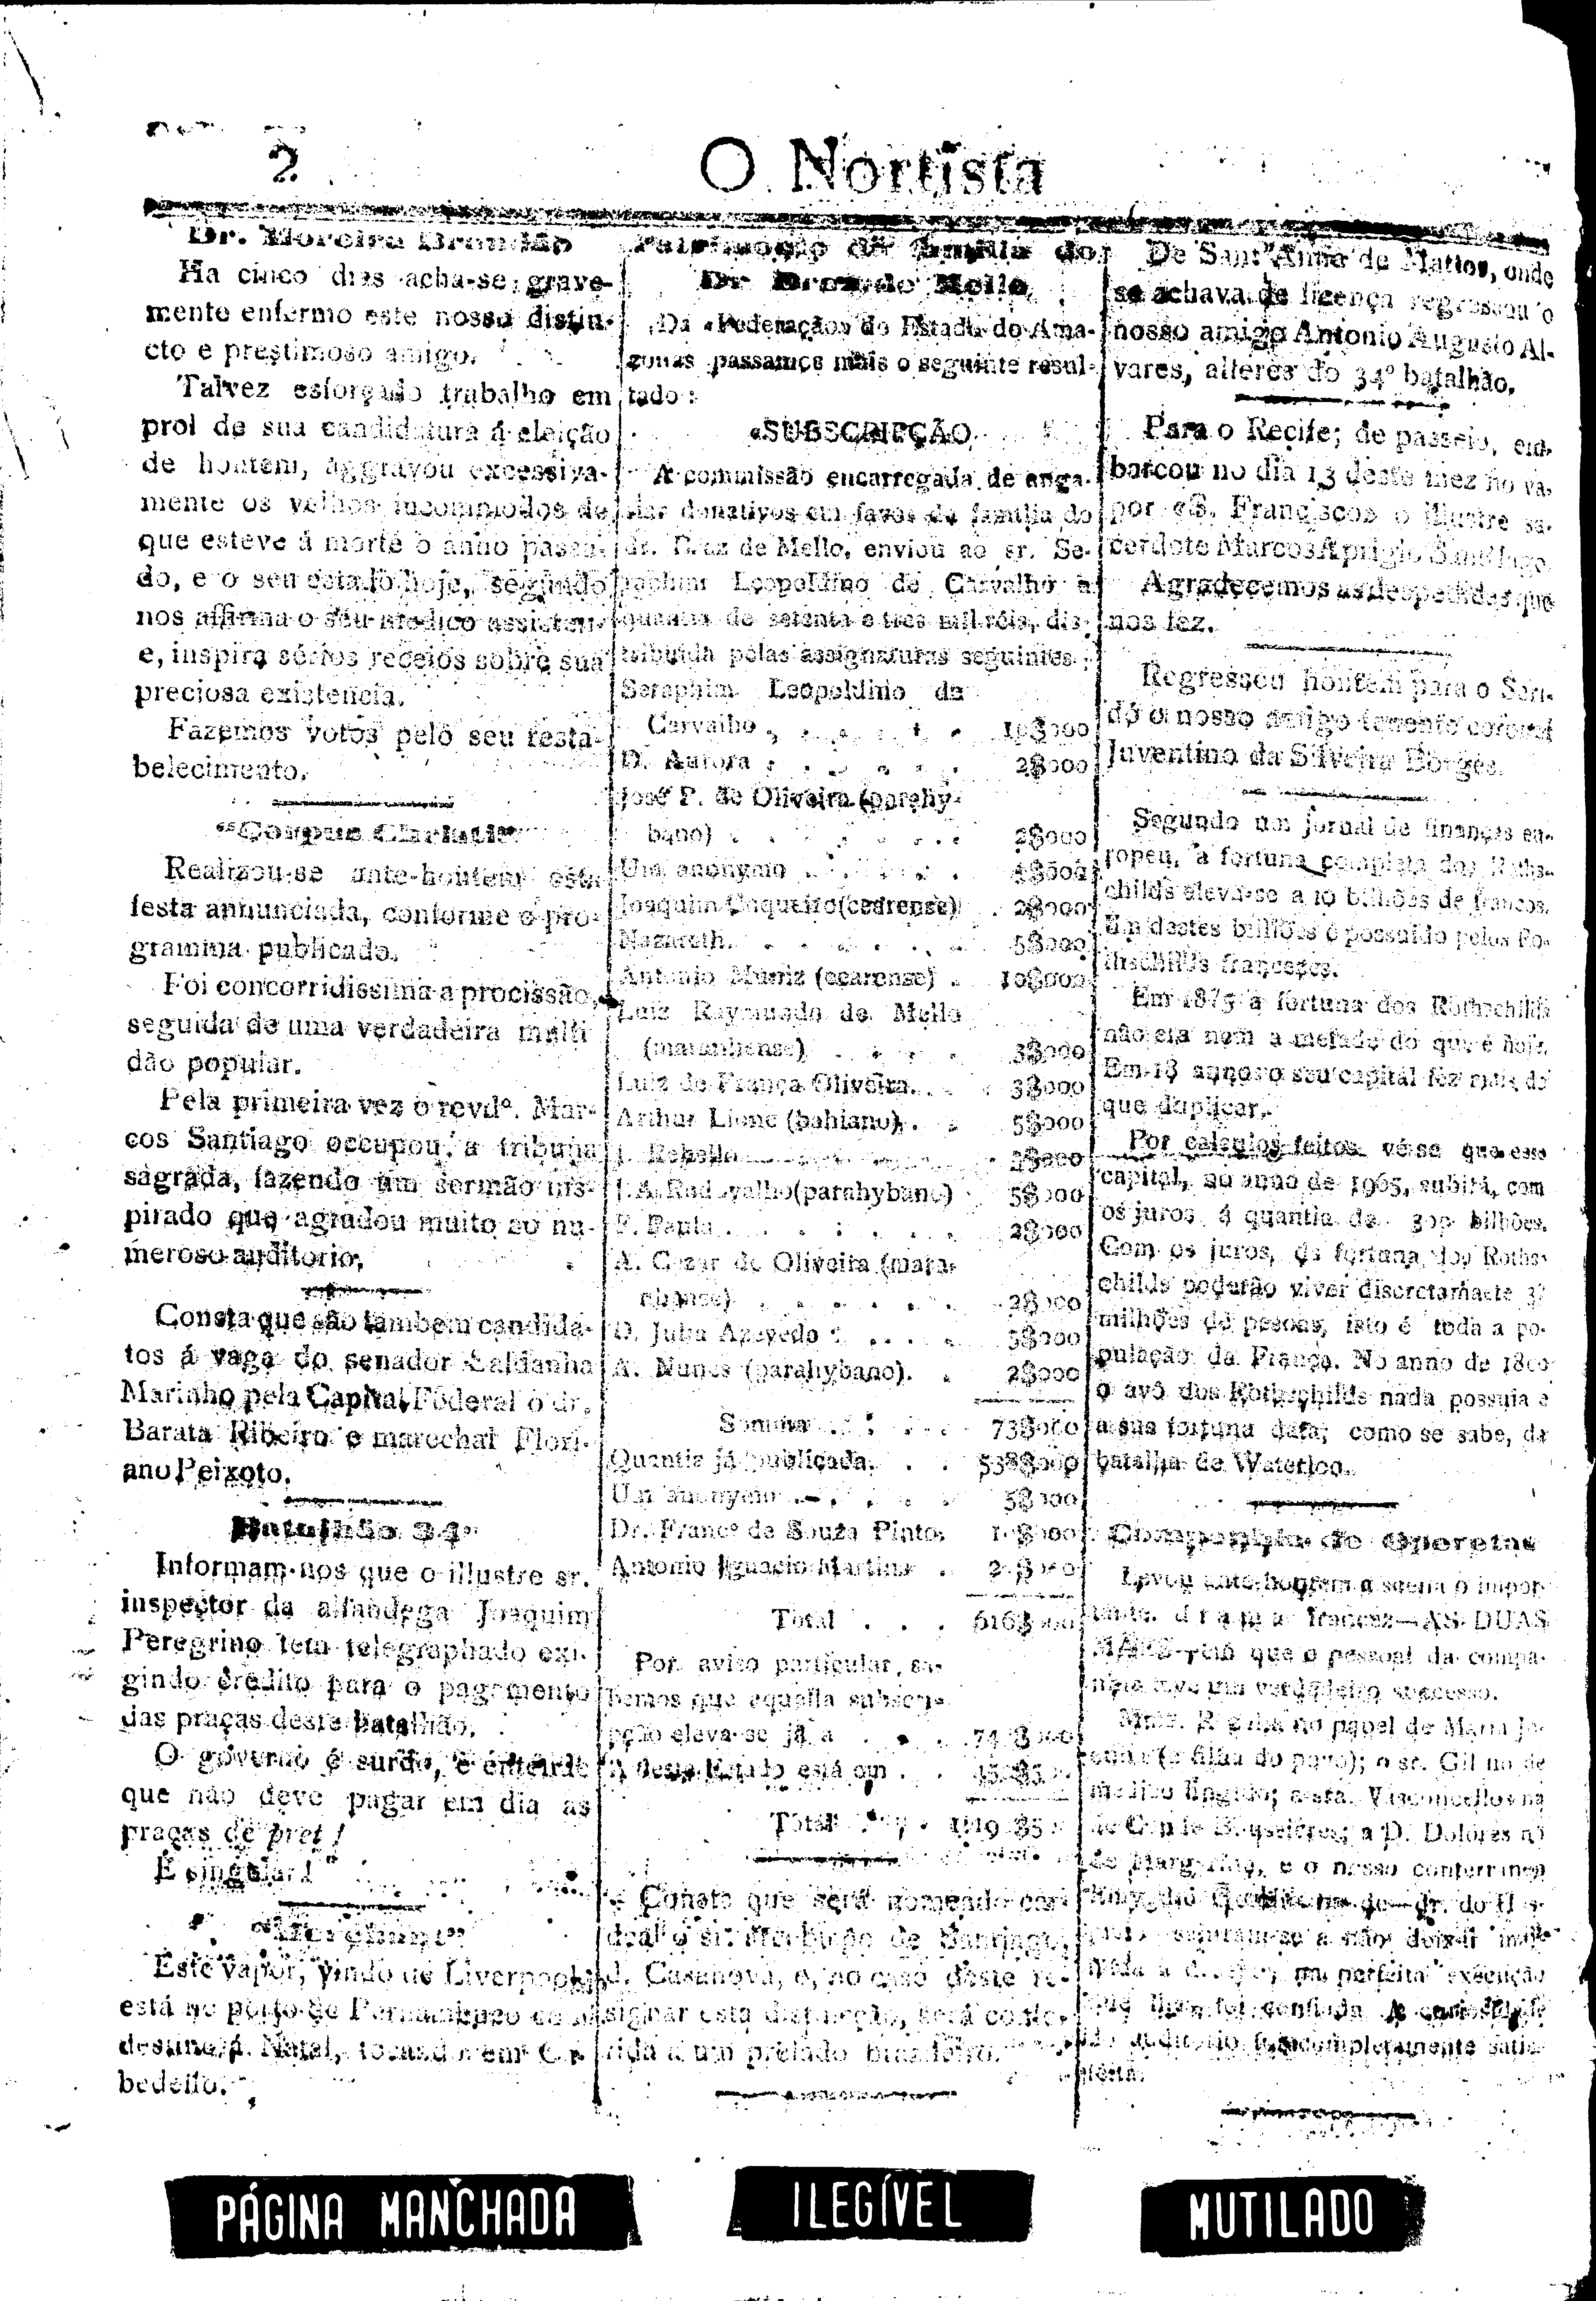 2
O Nortista
Dr. Moreira Brandão
Ha cinco dias acha-se grave-
mente enfermo este nosso distin-
cto e prestimoso amigo.
Talvez esforçado trabalho em
prol de sua candidatura á eleição
de hontem, aggravou excessiva-
mente os velhos incommodos de
que esteve á morte o anno passa-
do, e o seu estado hoje, segundo
nos affirma o seu medico assisten-
e, inspira sérios receios sobre sua
preciosa existencia.
Fazemos votos pelo seu resta-
belecimento.
"Corpus Christi"
Realizou-se ante-hontem esta
festa annunciada, conforme o pro-
gramma publicado.
Foi concorridissima a procissão,
seguida de uma verdadeira multi
dão popular.
Pela primeira vez o revdº. Mar-
cos Santiago occupou a tribuna
sagrada, fazendo um sermão ins-
pirado que agradou muito ao nu-
meroso auditorio.
Consta que são tambem candida-
tos á vaga do senador Saldanha
Marinho pela Capital Federal o dr.
Barata Ribeiro e marechal Flori-
ano Peixoto.
Batalhão 34º
Informam-nos que o illustre sr.
inspector da alfandega Joaquim
Peregrino tem telegraphado exi-
gindo credito para o pagamento
das praças deste batalhão.
O governo é surdo, e entende
que não deve pagar em dia as
praças de pret!
É singular!
Este vapor, vindo de Liverpool
está no porto de Pernambuco com
destino á Natal, tocando em Ca-
bedello.
Patrimonio da familia do
Dr. Braz de Mello
Da «Federação» do Estado do Ama-
zonas passamos mais o seguinte resul-
tado:
«SUBSCRIPÇÃO
A commissão encarregada de anga-
riar donativos em favor da familia do
dr. Braz de Mello, enviou ao sr. Se-
raphim Leopoldino de Carvalho a
quantia de setenta e tres mil réis, dis-
tribuida pelas assignaturas seguintes:
Seraphim Leopoldino de
Carvalho . . . . . . 10$000
D. Aurora . . . . . . 2$000
José P. de Oliveira (parahy-
bano) . . . . . . . 2$000
Um anonymo . . . . .
Joaquim Coqueiro (cearense) . 2$000
Nazareth. . . . . . . 5$000
Antonio Muniz (cearense) . 10$000
Luiz Raymundo de Mello
(maranhense) . . . . . 3$000
Luiz de França Oliveira. . . 3$000
Arthur Lione (bahiano). . . 5$000
J. Rebello
(parahybano) 5$000
F. Paula . . . . . . 2$000
A. Cezar de Oliveira (mara-
nhense) . . . . . . 2$000
D. Julia Azevedo . . . . 5$000
A. Nunes (parahybano). . 2$000
Somma . . . . . 73$000
Quantia já publicada. . . 538$000
Um anonymo . . . . . 5$000
Dr. Francº de Souza Pinto.
Antonio Ignacio Martins .
Total . . . 616$000
Por aviso particular, sa-
bemos que aquella subscri-
pção eleva-se já a . . .
A deste Estado está em . . .
Total
Consta que será nomeado car-
deal o sr. arcebispo de Santiago,
d. Casanova, e, no caso deste re-
signar esta distincção, será confe-
rida a um prelado brasileiro.
De Sant'Anna de Mattos, onde
se achava de licença regressou o
nosso amigo Antonio Augusto Al-
vares, alferes do 34º batalhão.
Para o Recife; de passeio, em-
barcou no dia 13 deste mez no va-
por «S. Francisco» o illustre sa-
cerdote Marcos Aprigio Santiago.
Agradecemos as despedidas que
nos fez.
Regressou hontem para o Seri-
dó o nosso amigo tenente coronel
Juventino da Silveira Borges.
Segundo um jornal de finanças eu-
ropeu, a fortuna completa dos Roths-
childs eleva-se a 10 bilhões de francos.
Um destes bilhões é possuido pelos Ro-
thschilds francezes.
Em 1875 a fortuna dos Rothschilds
não era nem a metade do que é hoje.
Em 18 annos o seu capital fez mais do
que duplicar.
Por calculos feitos vê-se que esse
capital, no anno de 1965, subirá, com
os juros, á quantia de 300 bilhões.
Com os juros, da fortuna dos Roths-
childs poderão viver discretamente 37
milhões de pesoas, isto é toda a po-
pulação da França. No anno de 1800
o avô dos Rothschilds nada possuia e
a sua fortuna data, como se sabe, da
batalha de Waterloo.
Companhia de Operetas
Levou ante-hontem a scena o impor-
tante drama francez—AS DUAS
que o pessoal da compa-
nhia teve um verdadeiro successo.
no papel de Maria Jo-
(a filha do povo); o sr. Gil no de
medico fingido; a sra. Vasconcellos na
a D. Dolores no
e o nosso conterraneo
perfeita execução
que lhes foi confiada
auditorio ficou completamente satis-
feita.
PÁGINA MANCHADA
ILEGÍVEL
MUTILADO